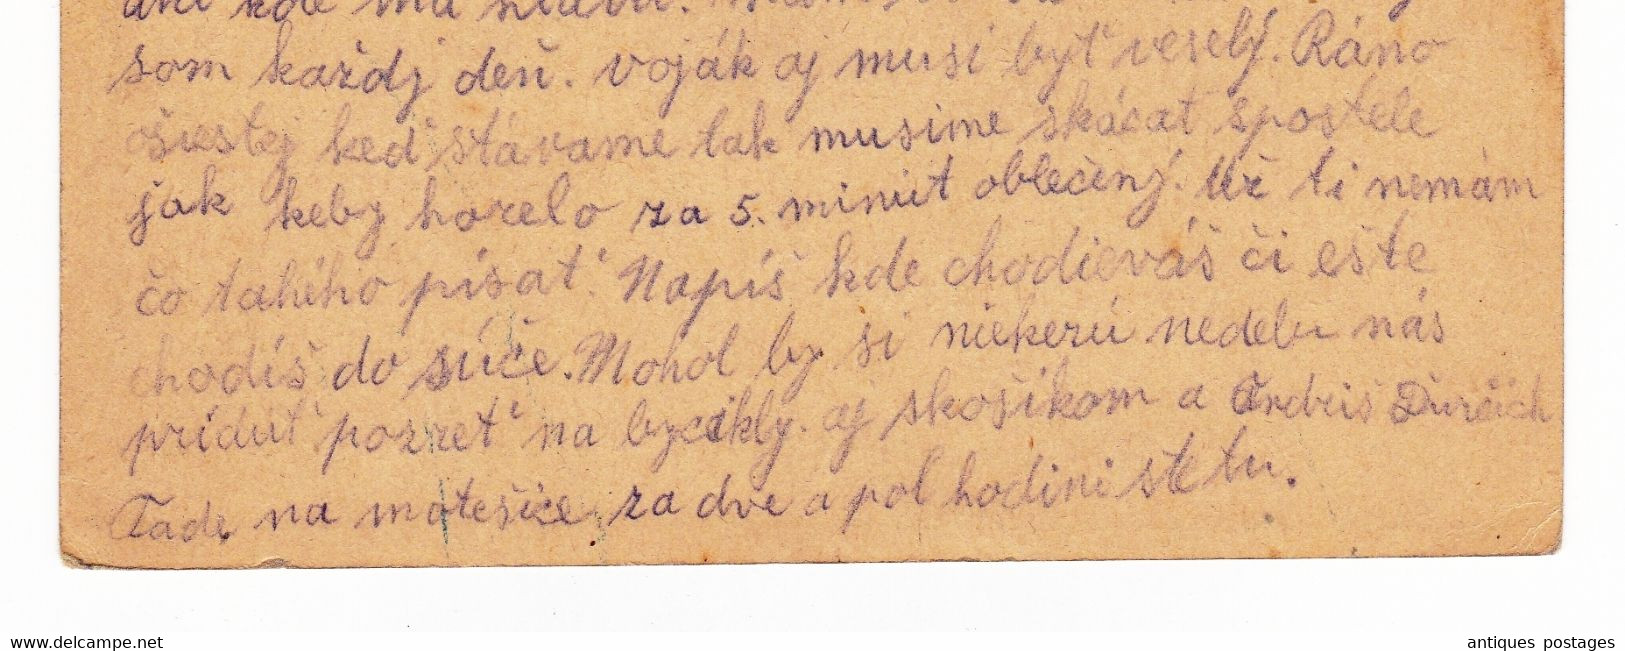 som každj deň. voják aj musí byť veselý. Ráno
ošiestej keď stávame tak musíme skácat spostele
jak keby horelo za 5. minut oblečený. Už ti nemám
čo takého písať. Napíš kde chodieváš či ešte
chodíš do súče. Mohol by si niekerú nedelu nás
príduť pozreť na bycikly. aj skošíkom a Ďurčich
Tade na motešice za dve a pol hodini ste tu.
www.delcampe.net
antiques postages